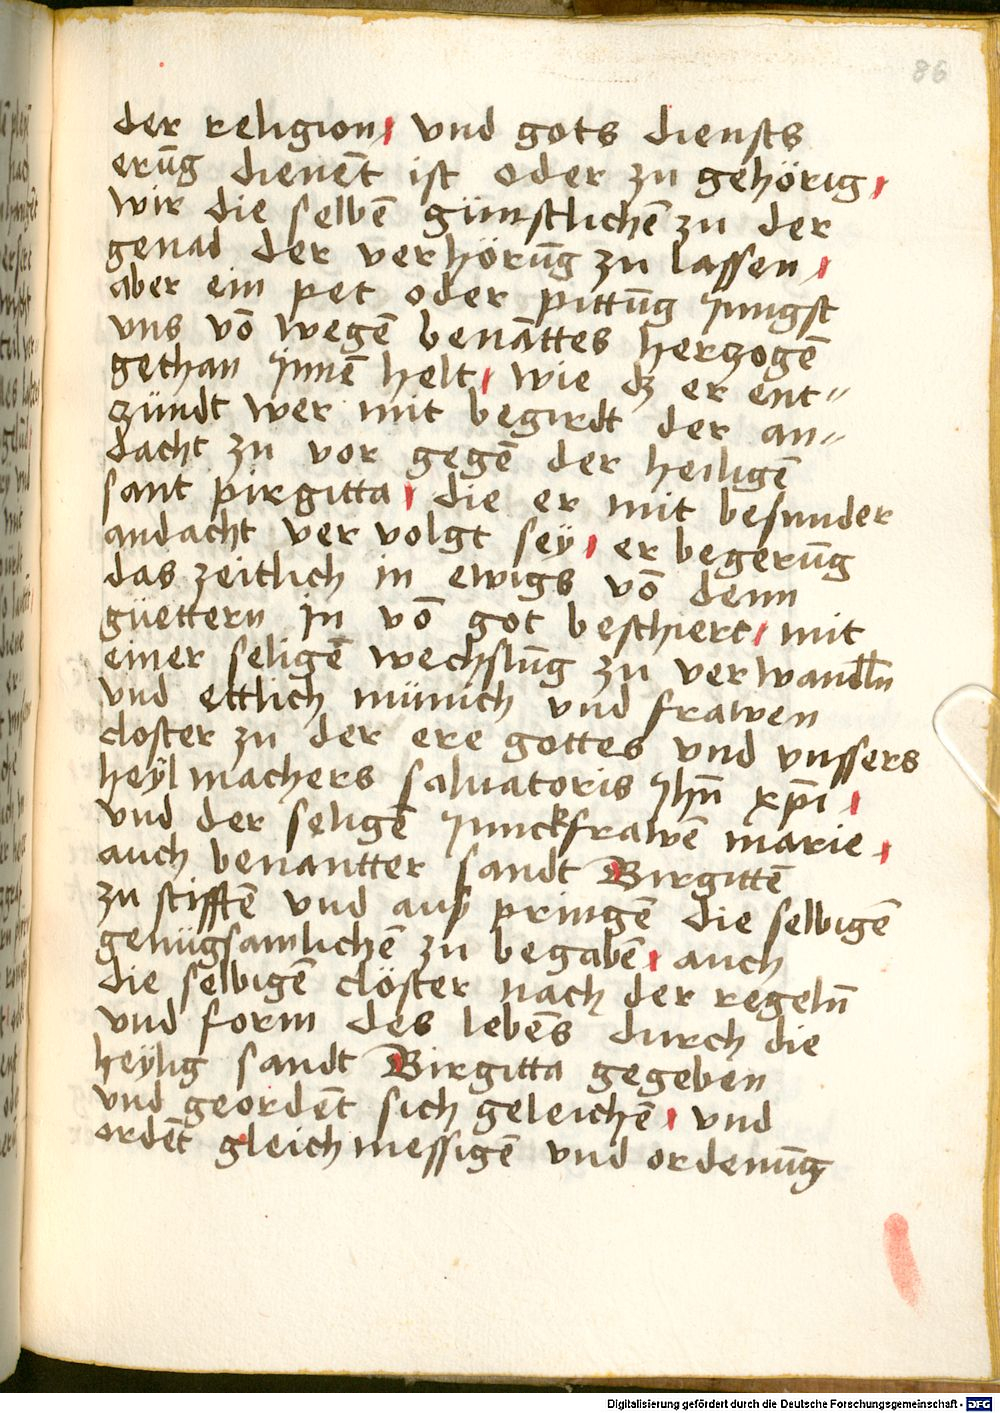 86
der religion, vnd gots diensts
erūg dienēt ist oder zu gehörig,
wir die selbē günstlichē zu der
genad der verhörūg zu lassen,
aber ein pet oder pittūg jungst
vns vō wegē benāttes herzogē
gethan jnnē helt, wie dz er ent=
zündt wer mit begirdt der an=
dacht zu vor gegē der heiligē
sant pirgitta, die er mit besunder
andacht ver volgt seÿ, er begerūg
das zeitlich in ewigs vō denn
güettern jn vō got beschiert, mit
einer seligē wechslūg zu verwandln̄
vnd ettlich münich vnd frawen
closter zu der ere gottes vnd vnssers
heÿlmachers saluatoris jhū xp̄i,
vnd der seligē junckfrawē marie,
auch benantter sandt Birgittē
zu stifftē vnd auß pringē die selbigē
genügsamlichē zu begabē, auch
die selbigē clöster nach der regeln̄
vnd form des lebēs durch die
heÿlig sandt Birgitta gegeben
vnd geordēt sich geleichē, vnd
ordēt gleichmessigē vnd ordenūg
Digitalisierung gefördert durch die Deutsche Forschungsgemeinschaft - DFG